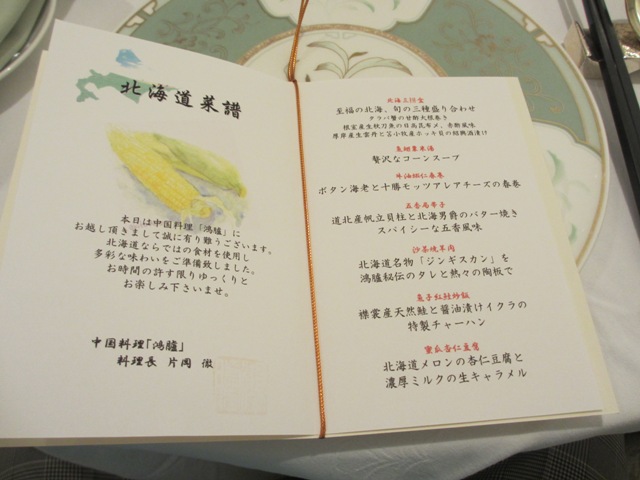 北海道菜譜
本日は中国料理「鴻臚」に
お越し頂きまして誠に有り難うございます。
北海道ならではの食材を使用し
多彩な味わいをご準備致しました。
お時間の許す限りゆっくりと
お楽しみ下さいませ。
中国料理「鴻臚」
料理長 片岡 徹
至福の北海、旬の三種盛り合わせ
タラバ蟹の甘酢大根巻き
根室産生秋刀魚の日高昆布〆、赤酢風味
厚岸産生雲丹と苫小牧産ホッキ貝の紹興酒漬け
魚翅粟米湯
贅沢なコーンスープ
牛油蝦仁春巻
ボタン海老と十勝モッツアレアチーズの春巻
五香扇帯子
道北産帆立貝柱と北海男爵のバター焼き
スパイシーな五香風味
沙茶焼羊肉
北海道名物「ジンギスカン」を
鴻臚秘伝のタレと熱々の陶板で
魚子紅鮭炒飯
襟裳産天然鮭と醤油漬けイクラの
特製チャーハン
蜜瓜杏仁豆腐
北海道メロンの杏仁豆腐と
濃厚ミルクの生キャラメル